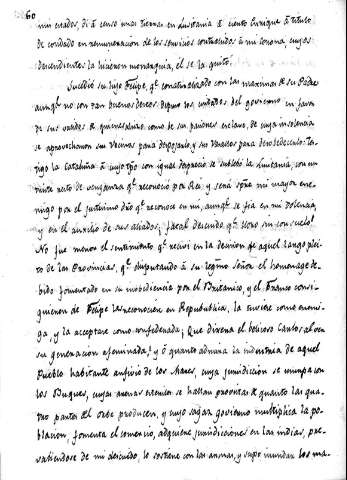 60
mis estados, di à censo unas tierras en Lusitania à cierto Enrique à titulo
de condado en remuneracion de los servicios contrahidos à mi corona, cuyos
descendientes la hicieron monarquia, él se la quitó.
Sucedió su hijo Felipe, qe. connaturalizado con las maximas de su Padre
aunqe. no con tan buenos deseos depuso los cuidados del govierno en favor
de sus validos de quienes
se aprovecharon sus Vecinos para despojarlo, y sus Vasallos para desobedecerlo:
la Cataluña à cuyo con igual desgracio se sublebó la Lusitania, con un
acto de venganza qe. reconoció por Rei; y será spre. mi mayor ene-
migo por el dominio qe. reconoce en mi, aunqe. se fia en mi dolencia,
y en el auxilio de sus aliados; fatal descuido, qe. lloro sin consuelo!
No fue menor el sentimiento qe. recivi en la decision de aquel largo plei-
to de las Provincias, qe. disputando à su regimo Señor el homenage de-
bido fomentado en su inobediencia por el Britanico, y el Franco consi-
guieron de Felipe las reconociese en Republica, la tuviese como enemi-
ga, y la aceptase como confederada; Que dixera el belicoso Carlos al ver
su generacion afeminada, y ó quanto admira la industria de aquel
Pueblo habitante anfivio de los Mares, cuya jurisdicion se rompa con
los Buques, cuyas arenas esteriles se hallan provistas de quanto las qua-
tro partes del orbe producen, y cuyo sagaz govierno multiplica la po-
blacion, fomenta el comercio, adquiere jurisdicciones en las indias, pre-
valiendose de mi descuido, lo sostiene con las armas, y supo inundar los ma-